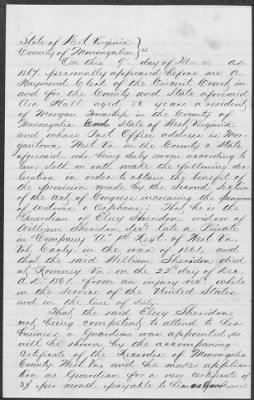 State of West Virginia }
County of Monongalia } ss
On this 9 day of March AD
1867 personally appeared before me A
Haymond Clerk of the Circuit Court in
and for the County and State aforesaid
Asa Hall aged 56 years a resident
of Morgan Township in the County of
Monongalia State of West Virginia
and whose Post Office address is Mor-
gantown West Va in the County & State
aforesaid who being duly sworn according to
law doth on oath make the following dec-
laration in order to obtain the benefit of
the provision made by the Second Section
of the Act of Congress increasing the pension
of widows & Orphans; That he is the
Guardian of Elsey Sheridon widow of
William Sheridon, decd late a Private
in Company 1st Regt of West Va
Vol Cavly in the war of 1861, and
that the said William Sheridon died
at Romney Va. on the 22d day of Dec.
A.D. 1861, from an injury recd while
in the service of the United States
and in the line of duty.
That the said Elsey Sheridon
not being competent to attend to her
business a Guardian was appointed, as
will be shown by the accompanying
certificate of the Recorder of Monongalia
County West Va, and he makes applica-
tion as Guardian for a new certificate of
per month payable to him as Guardian